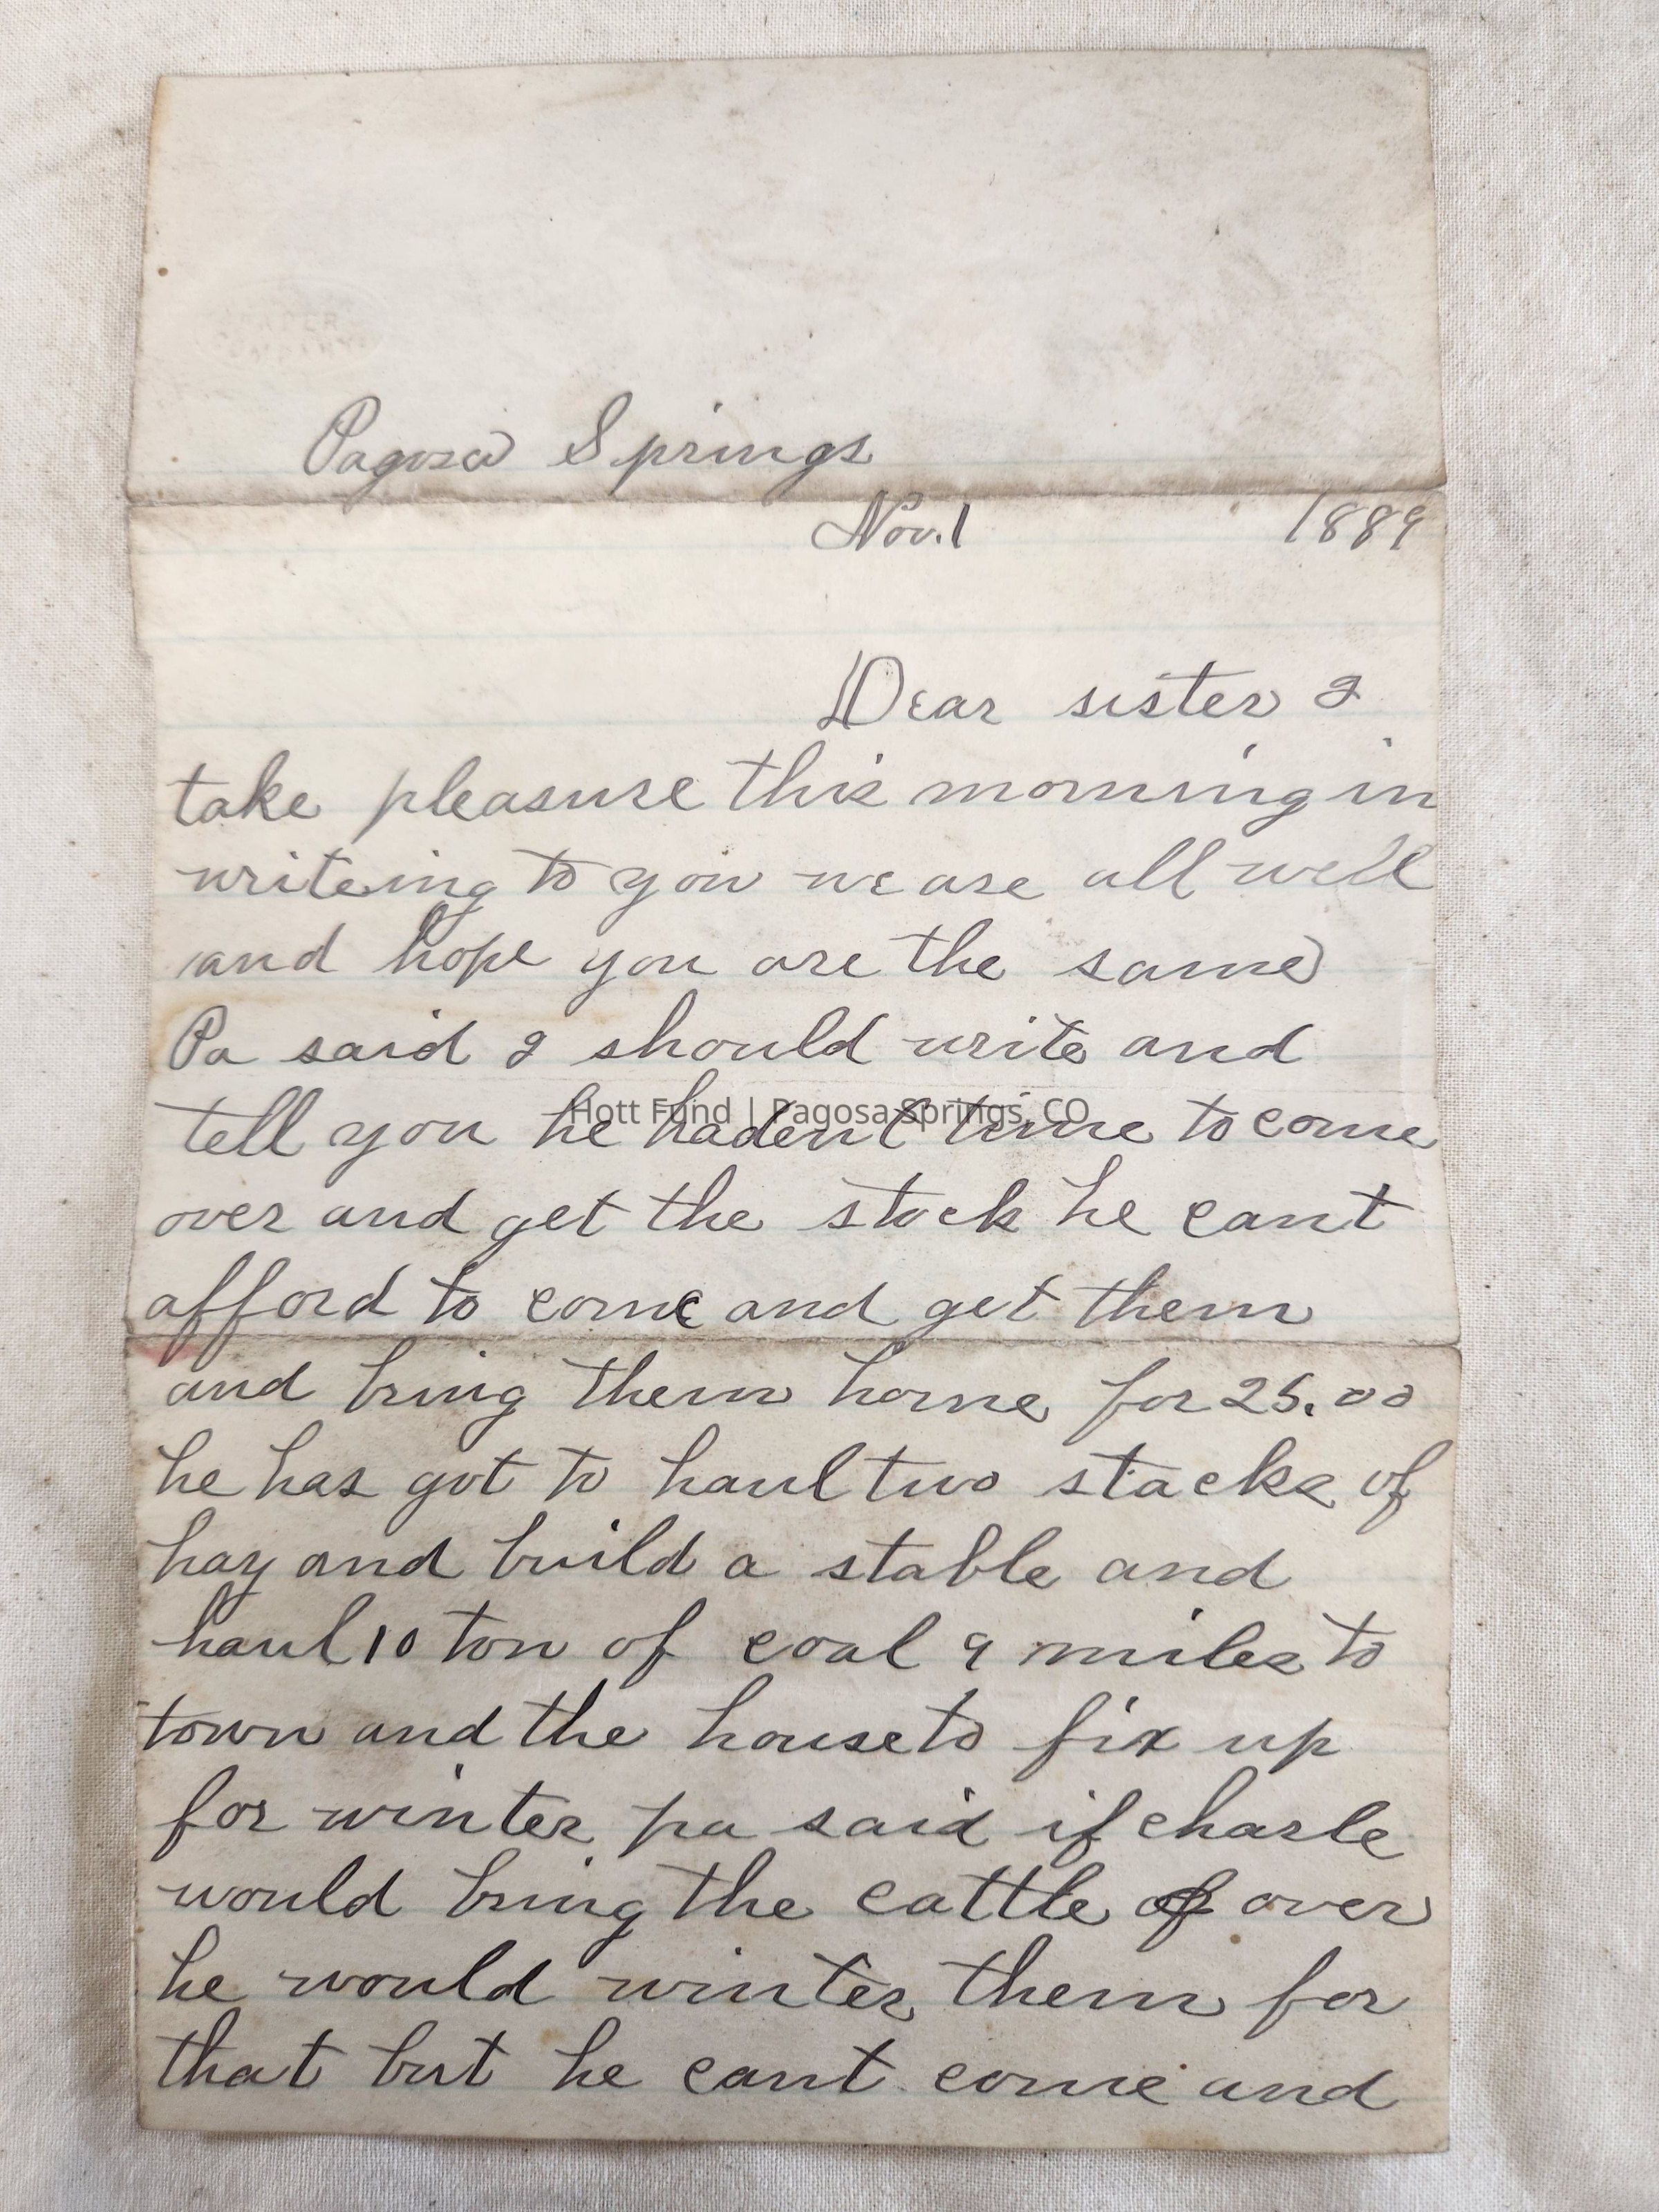 Pagosa Springs
Nov. 1 1889
Dear sister I
take pleasure this morning in
writeing to you we are all well
and hope you are the same
Pa said I should write and
tell you he hadent time to come
Hott Fund | Pagosa Springs, CO
over and get the stock he cant
afford to come and get them
and bring them home for 25.00
he has got to haul two stacks of
hay and build a stable and
haul 10 ton of coal 9 miles to
town and the house to fix up
for winter pa said if charle
would bring the cattle of over
he would winter them for
that but he cant come and